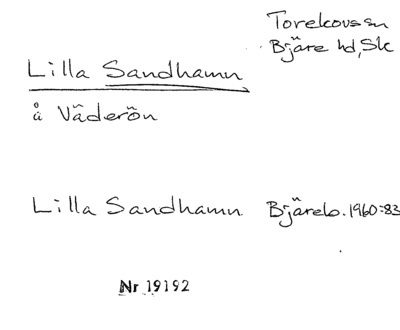 Torekovs sn
Bjäre hd, Sk
Lilla Sandhamn
å Väderön
Lilla Sandhamn Bjärelo. 1960:83
Nr 19192